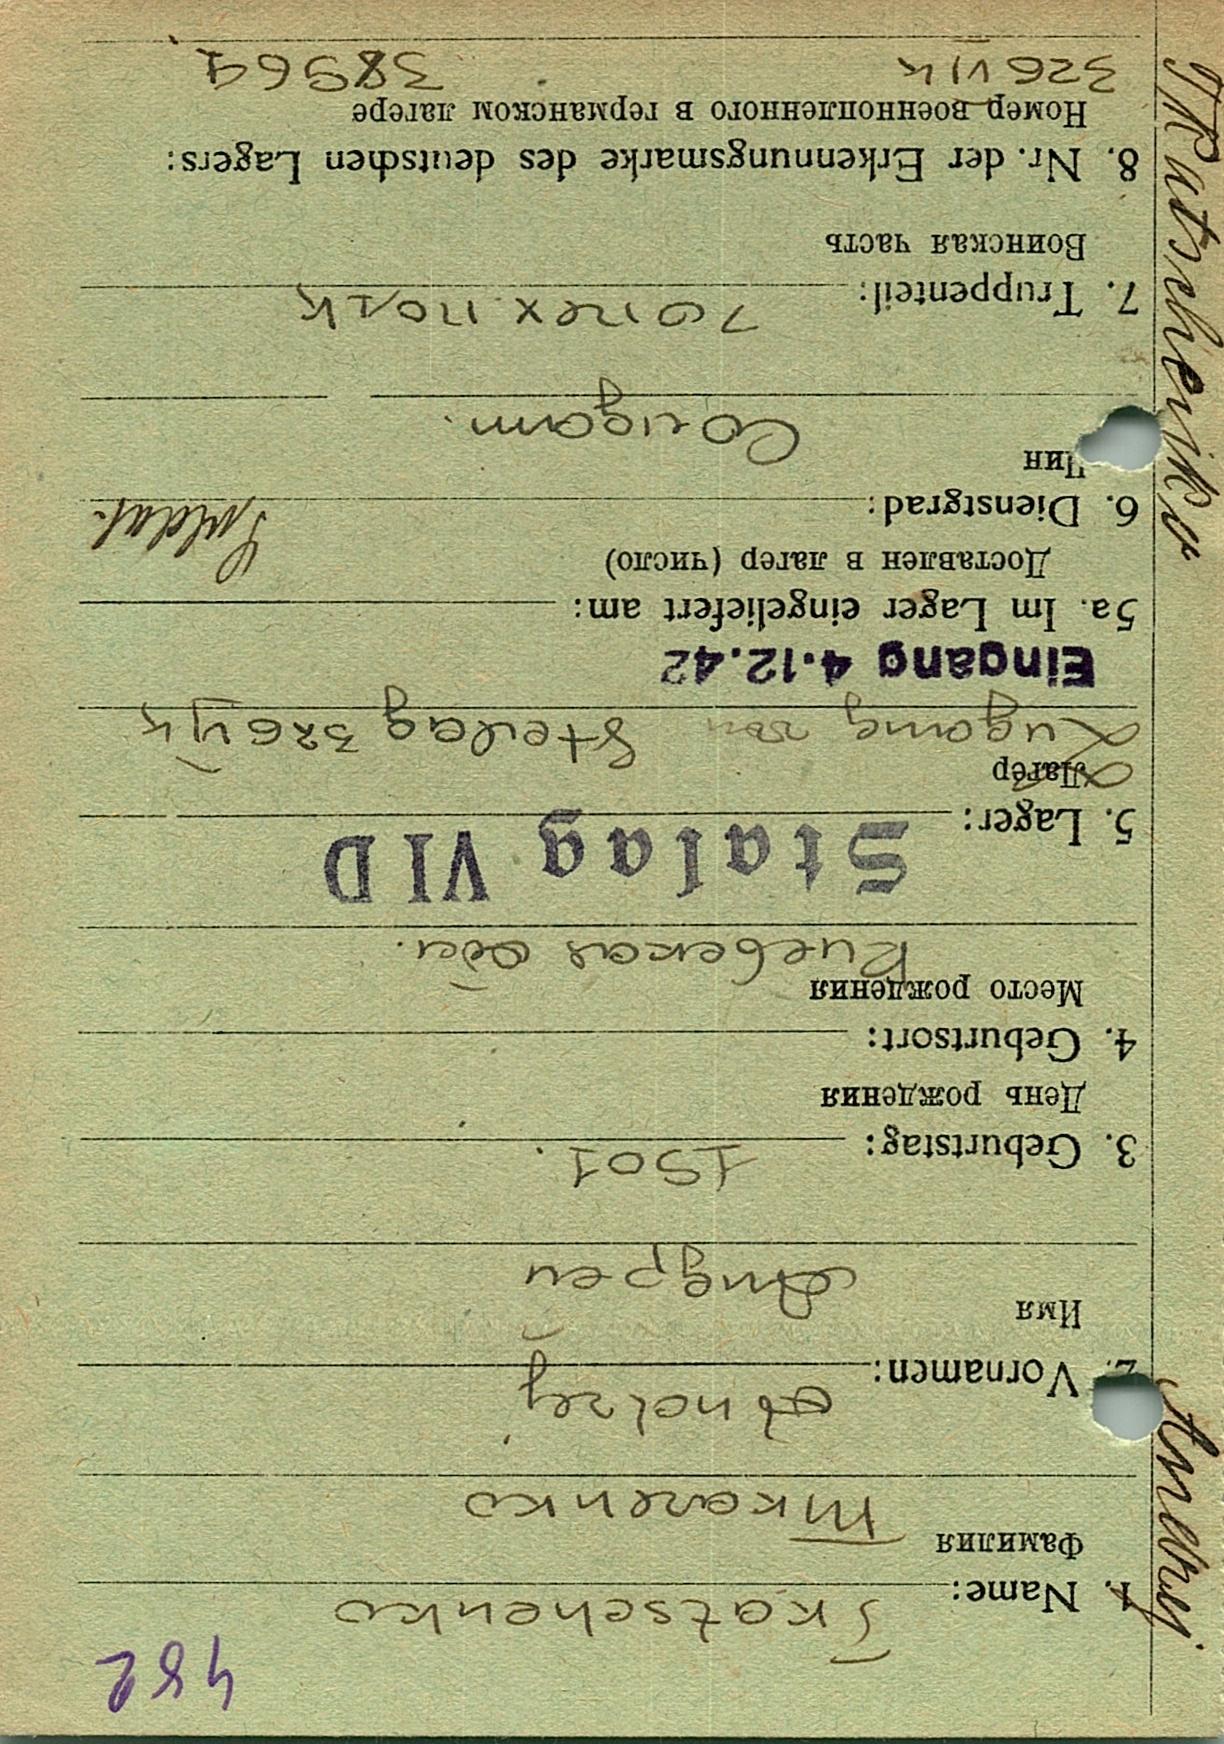 482
1. Name: Tkatschenko
Фамилия Ткаченко
2. Vornamen: Andrej
Имя Андрей
3. Geburtstag: 1901.
День рождения
4. Geburtsort:
Место рождения
Киевская обл.
Stalag VI D
5. Lager:
Лагер
Zugang von Stalag 326 VI K
Eingang 4.12.42
5a. Im Lager eingeliefert am:
Доставлен в лагер (число)
6. Dienstgrad: Soldat.
Чин
Солдат.
7. Truppenteil: 70 пех полк
Воинская часть
8. Nr. der Erkennungsmarke des deutschen Lagers:
Номер военнопленного в германском лагере
326 VI K 38964
Tkatschenko Andrej